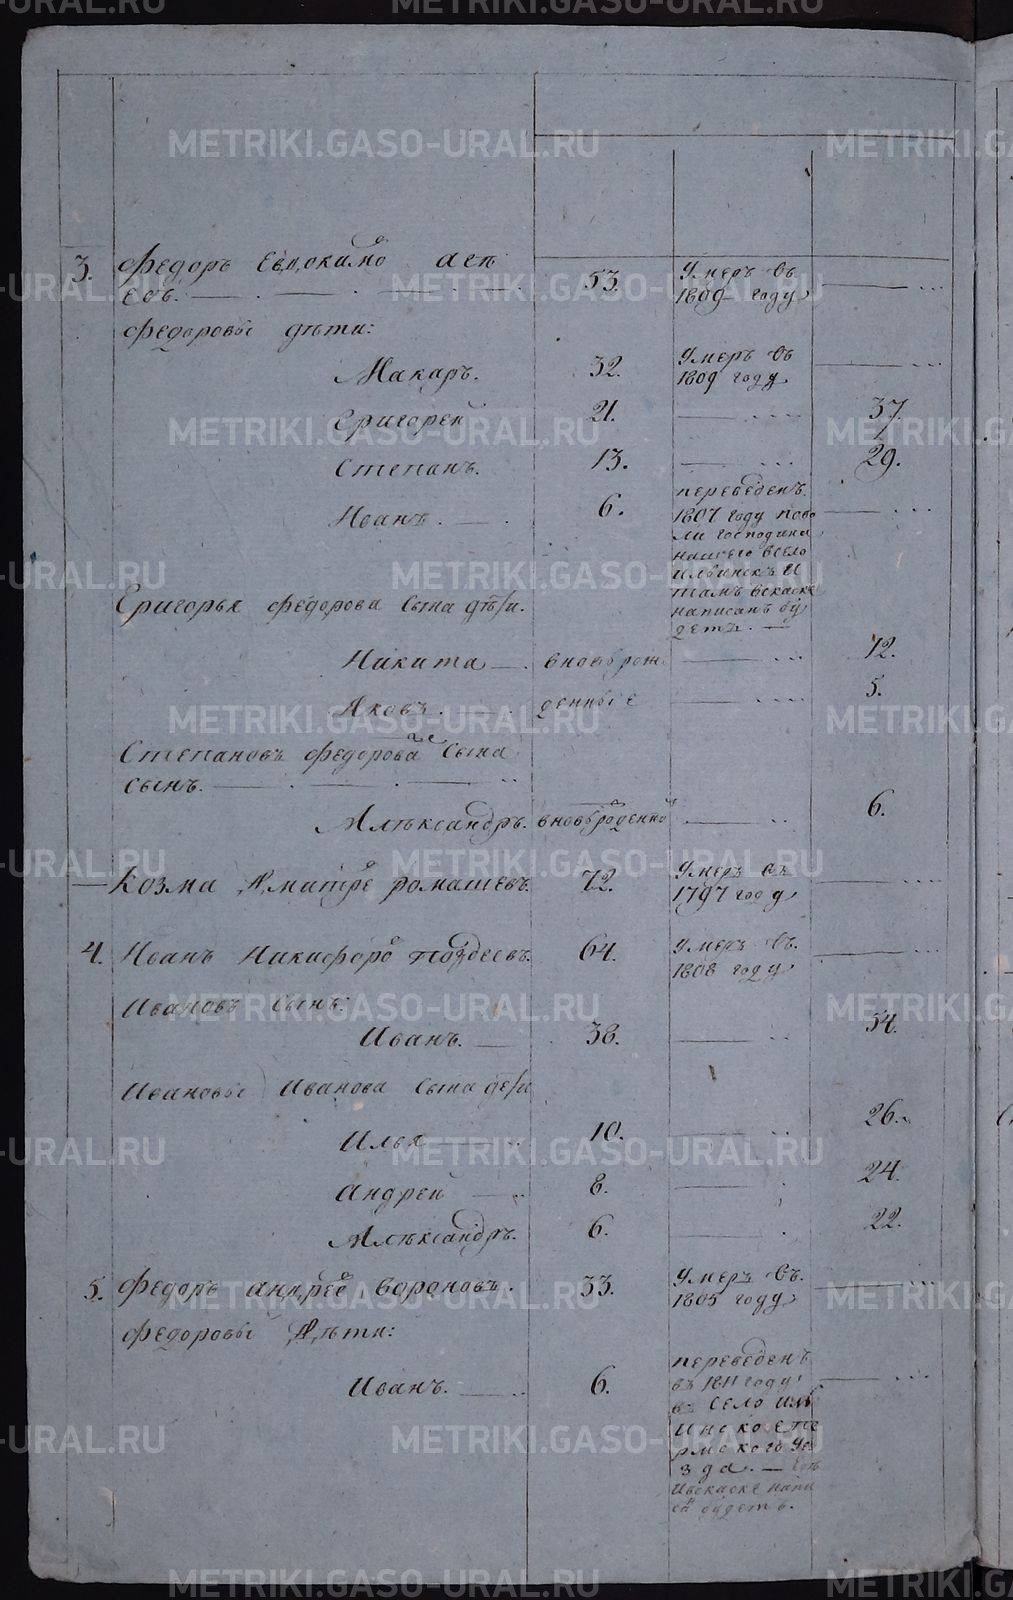 3. Федоръ Евдокимо
53. Умеръ въ
евъ. 1809 году
Федоровы дѣти:
Макаръ. 32. Умеръ въ
1809 году
Григорей 21. 37.
Степанъ. 13. 29.
Иванъ. 6. переведенъ
1807 году пово
ли господина
нашего всело
Ильинскъ и
тамъ вскаске
написанъ бу
детъ.
Григорья Федорова сына дѣти.
Никита вновьрож 12.
Яковъ. денные 5.
Степановъ Федорова сына
сынъ.
Алѣксандръ. вновьроденной 6.
Козма Дмитре ромашевъ 72. Умеръ въ
1797 году
4. Иванъ Никифоро Поздеевъ. 64. умеръ въ.
1808 году
Ивановъ сынъ:
Иванъ. 38. 54.
Ивановы Ивановa сына дети
Илья 10. 26.
Андрей 8. 24.
Алѣксандръ. 6. 22.
5. Федоръ андрее вороновъ. 33. Умеръ въ.
1805 году
Федоровы Дѣти:
Иванъ. 6. переведенъ
въ 1811 году
въ село иль
инское пе
рмского уе
зда.
ивскаске напи
санъ будетъ.
METRIKI.GASO-URAL.RU